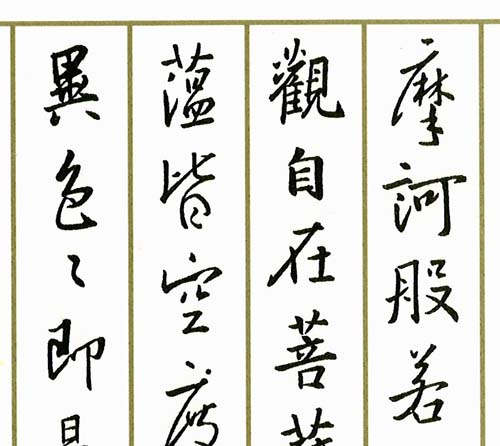 摩訶般若
觀自在菩
薀皆空度
異色々即